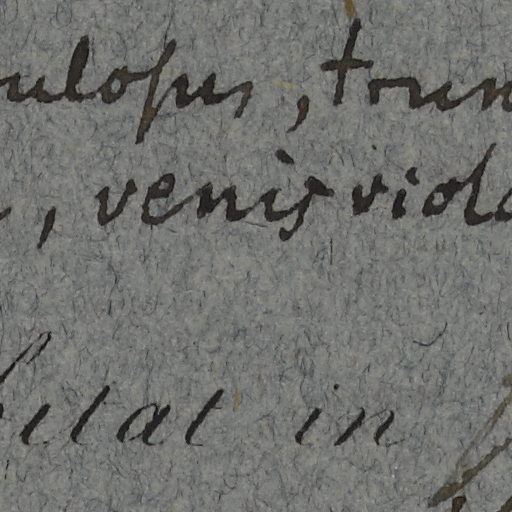 ulosus, trun
, venis viola
bitat in